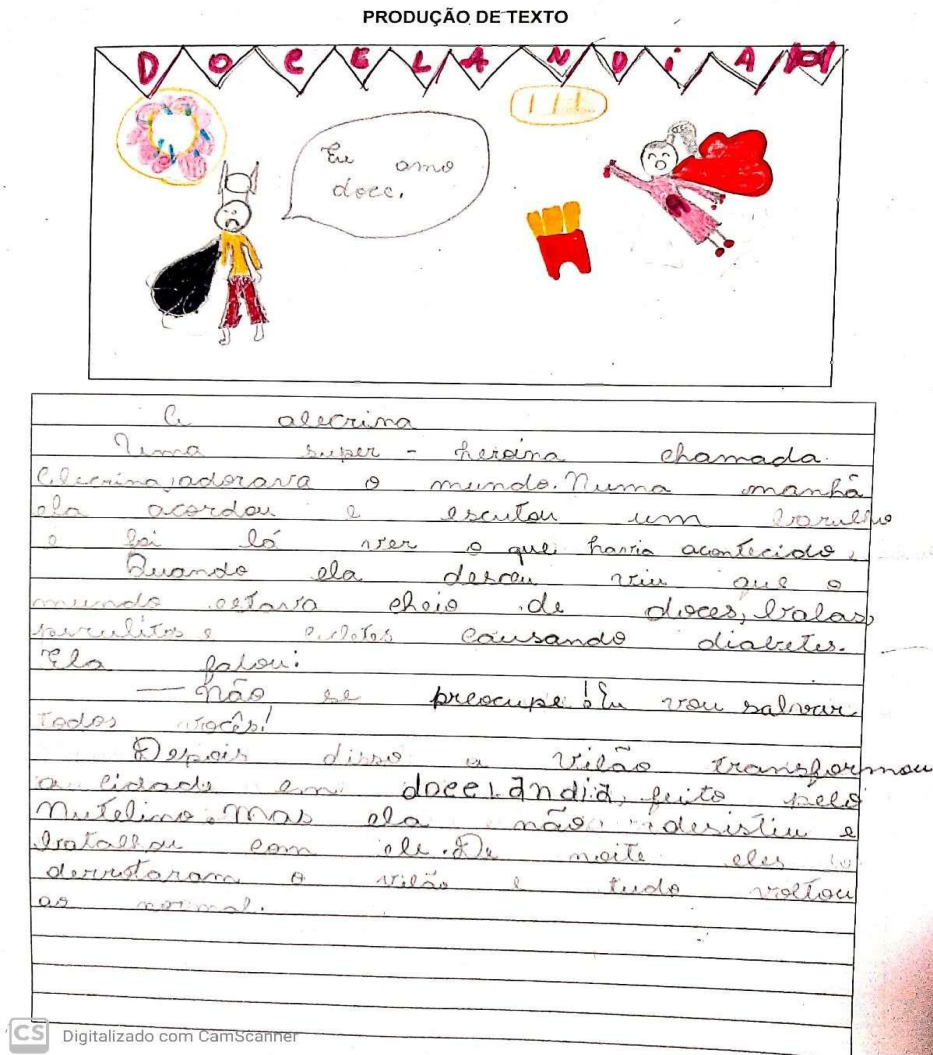 PRODUÇÃO DE TEXTO
DOCELANDiA
Eu amo
doce.
A alecrina
Uma super - heroina chamada
Alecrina, adorava o mundo. Numa manhã
ela acordou e escutou um barulho
e foi lá ver o que havia acontecido.
Quando ela desceu viu que o
mundo estava cheio de doces, balas,
pirulitos e causando diabetes.
Ela falou:
— Não se preocupe! Eu vou salvar
todos vocês!
Depois disso o vilão transformou
a cidade em docelândia, feito pelo
Nutelino. Mas ela não desistiu e
batalhou com ele. De noite eles
derrotaram o vilão e tudo voltou
ao normal.
CS Digitalizado com CamScanner